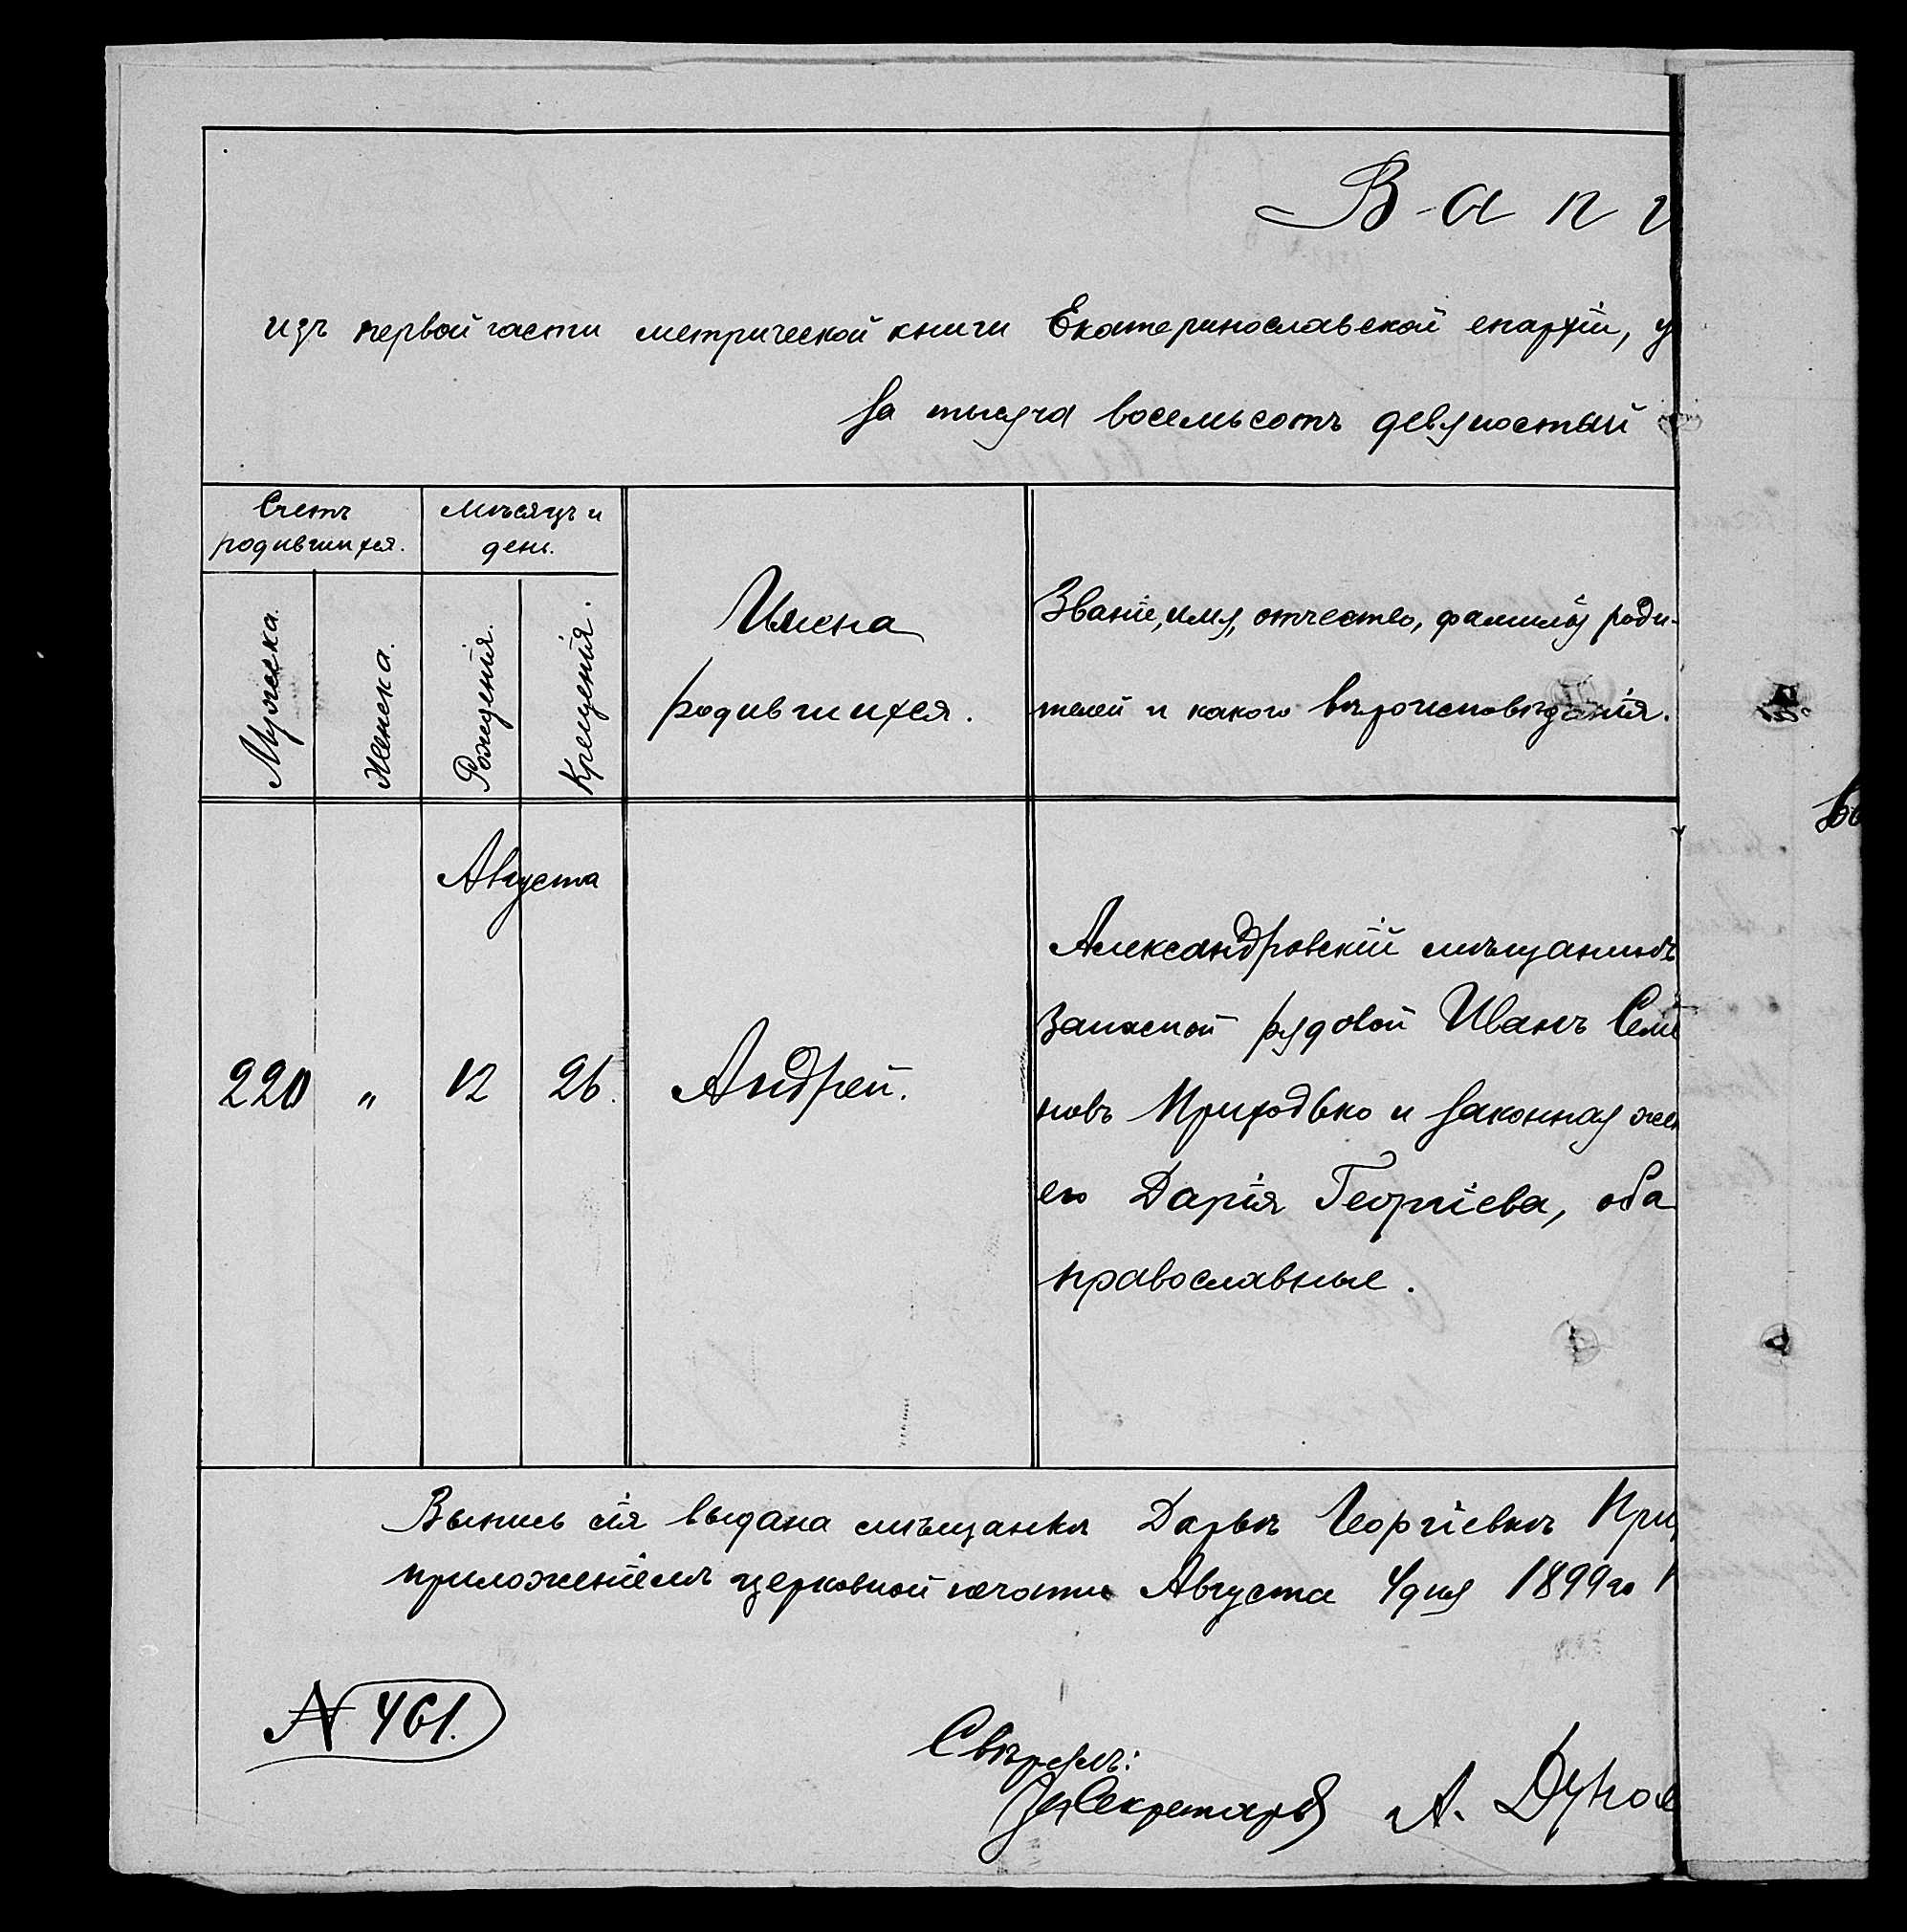 В а п и
изъ первой части метрической книги Екатеринославской епархіи, у
За тысяча восемьсотъ девяностый
Счетъ
родившихся.
Мѣсяцъ и
день.
Мужеска.
Женска.
Рожденія.
Крещенія.
Имена
родившихся.
Званіе, имя, отчество, фамилія роди-
телей и какого вѣроисповѣданія.
Августа
220 „ 12 26. Андрей.
Александровскій мѣщанинъ
запасной рядовой Иванъ Семе
новъ Приходько и законная жен
его Дарія Георгіева, оба
православные.
Выпись сія выдана мѣщанкѣ Дарьѣ Георгіевнѣ При
приложеніемъ церковной печати Августа 4 дня 1899 го
№ 461.
Свѣрялъ:
За Секретаря А. Дунае